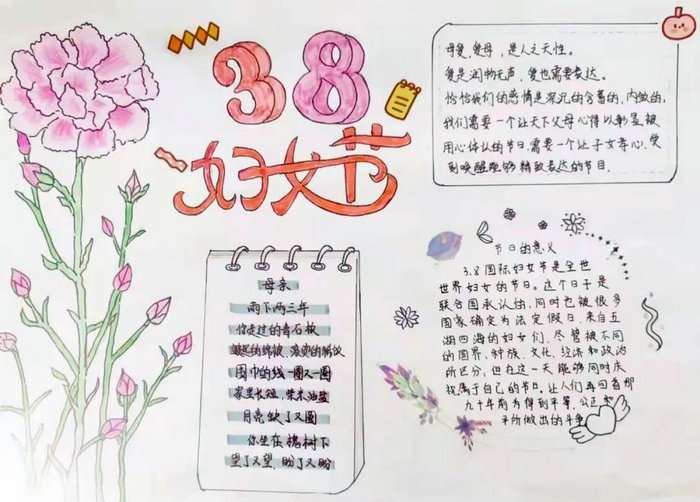 38
妇女节
母爱,爱母,是人之天性。
爱是润物无声,爱也需要表达。
恰恰我们的感情是深沉的含蓄的,内敛的,
我们需要一个让天下父母心得以彰显被
用心体认的节日,需要一个让子女孝心,受
到唤醒能够精致表达的节日.
母亲
雨下两三年
你走过的青石板
缝起的绵被 滚烫的稀饭
围巾的线一圈又一圈
家里长短,柴米油盐
月亮缺了又圆
你坐在槐树下
望了又望,盼了又盼
节日的意义
3.8国际妇女节是全世
世界妇女的节日。这个日子是
联合国承认的,同时也被很多
国家确定为法定假日,来自五
湖四海的妇女们,尽管被不同
的国界、种族、文化、经济和政治
所区分,但在这一天能够同时庆
祝属于自己的节日,让人们再回首那
九十年前为得到平等、公正和
平所做出的斗争